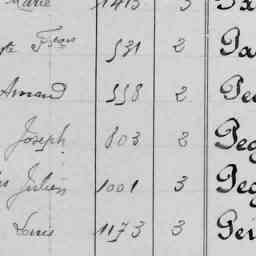 Marie 1415 3
531 2 Pa
Amand 558 2 Pe
Joseph 803 2 Peg
Julien 1001 3 Peg
Louis 1173 3 Pei